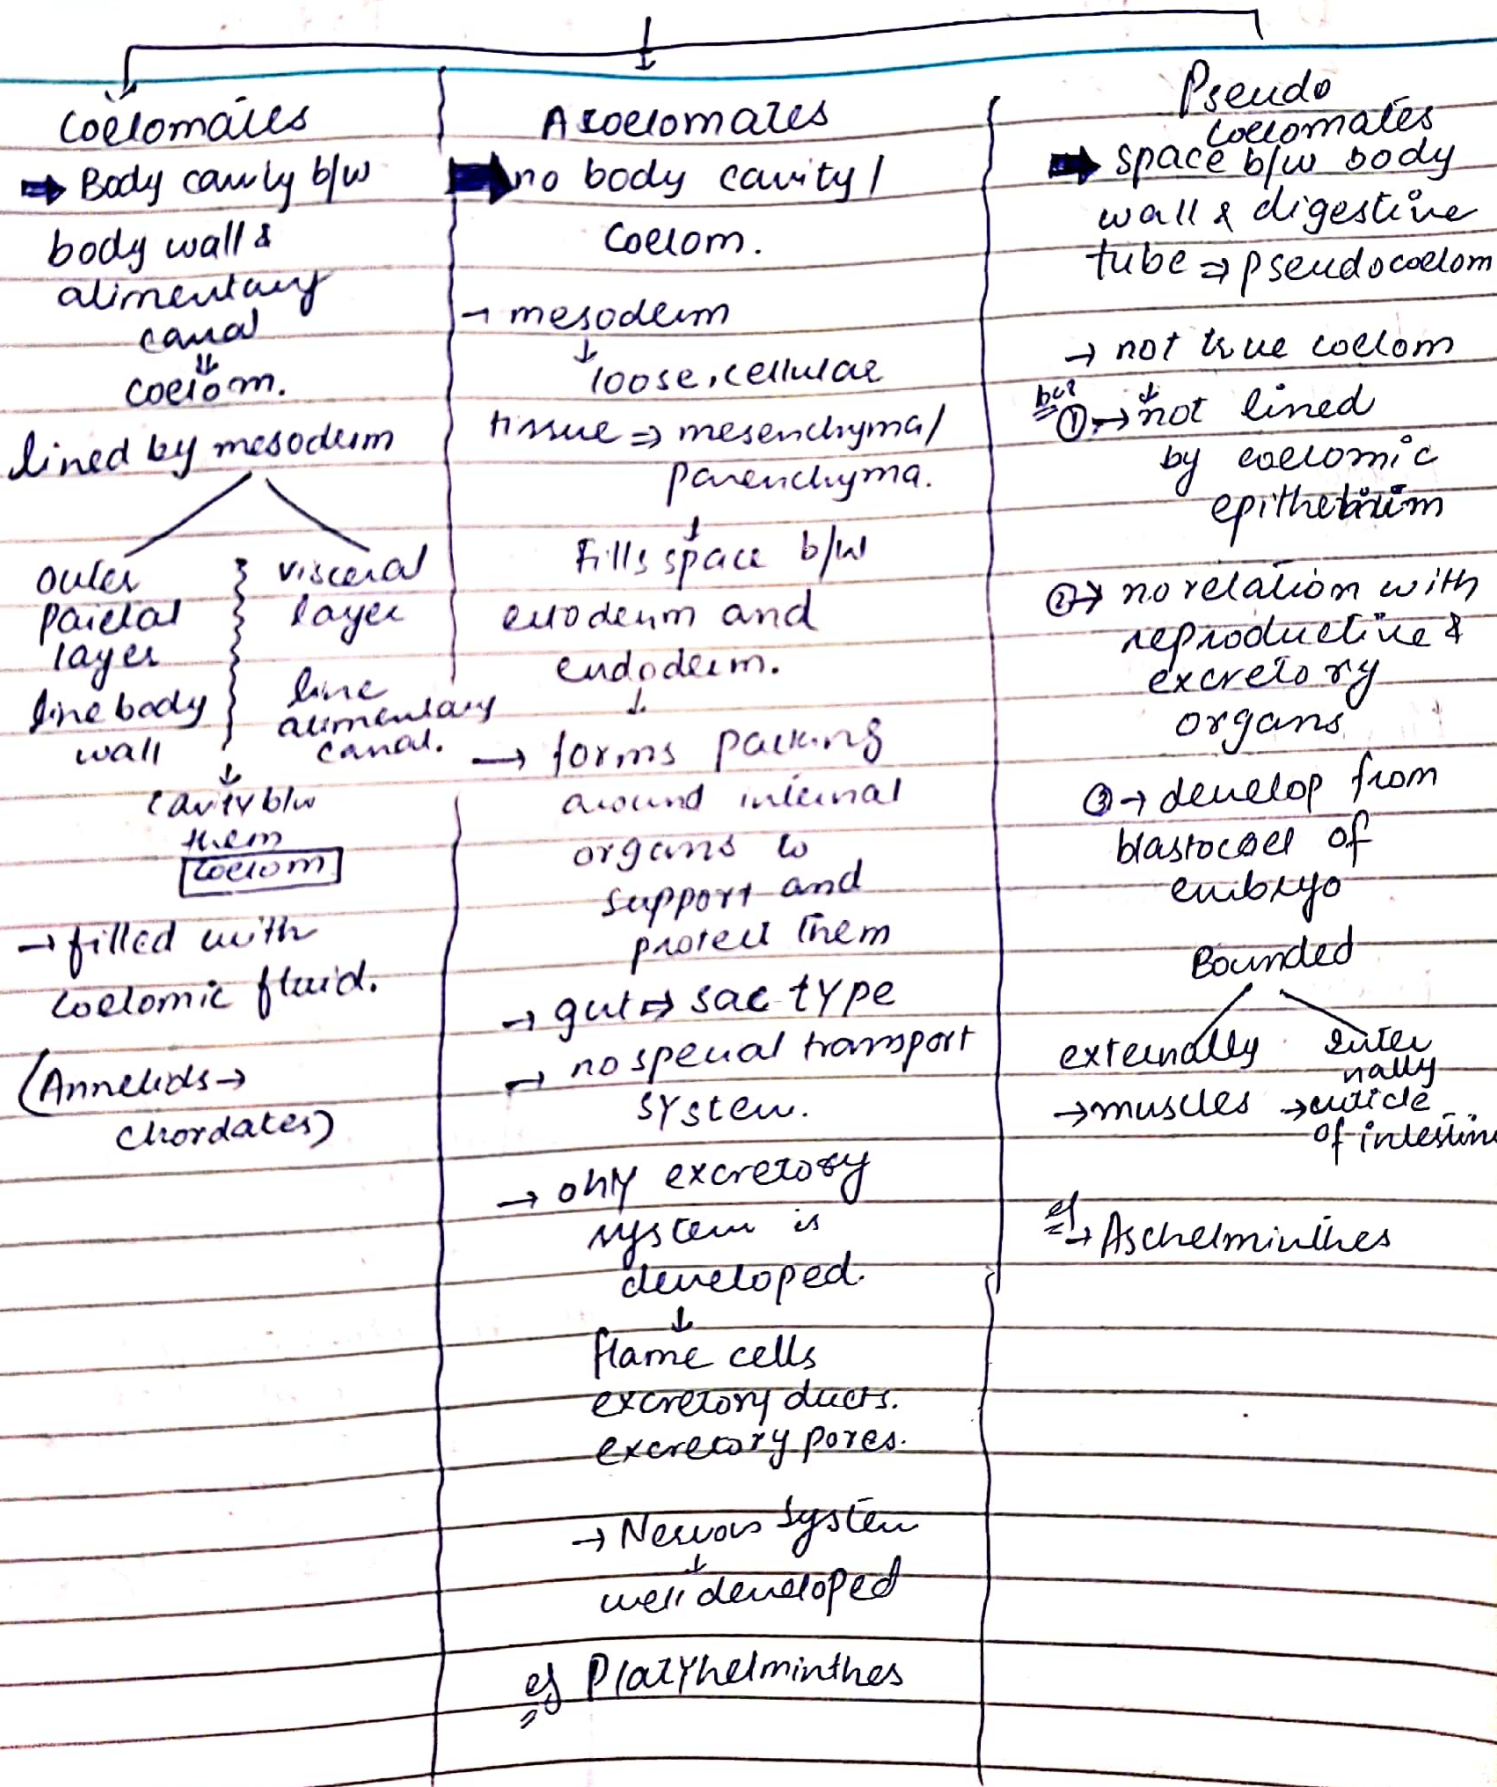 Coelomates
⇒ Body cavity b/w
body wall &
alimentary
canal
⇓
coelom.
lined by mesoderm
outer
parietal
layer
line body
wall
visceral
layer
line
alimentary
canal.
↓
cavity b/w
them
coelom
→ filled with
coelomic fluid.
(Annelids →
chordates)
Acoelomates
⇒ no body cavity /
Coelom.
→ mesoderm
↓
loose, cellular
tissue ⇒ mesenchyma/
parenchyma.
↓
Fills space b/w
ectoderm and
endoderm.
↓
→ forms packing
around internal
organs to
support and
protect them
→ gut ⇒ sac type
→ no special transport
system.
→ only excretory
system is
developed.
↓
flame cells
excretory ducts.
excretory pores.
→ Nervous system
↓
well developed
eg Platyhelminthes
Pseudo
coelomates
⇒ space b/w body
wall & digestive
tube ⇒ pseudocoelom
→ not true coelom
↓
① → not lined
by coelomic
epithelium
② → no relation with
reproductive &
excretory
organs
③ → develop from
blastocoel of
embryo
Bounded
externally
→ muscles
inter
nally
→ cuticle
of intestine
eg → Aschelminthes